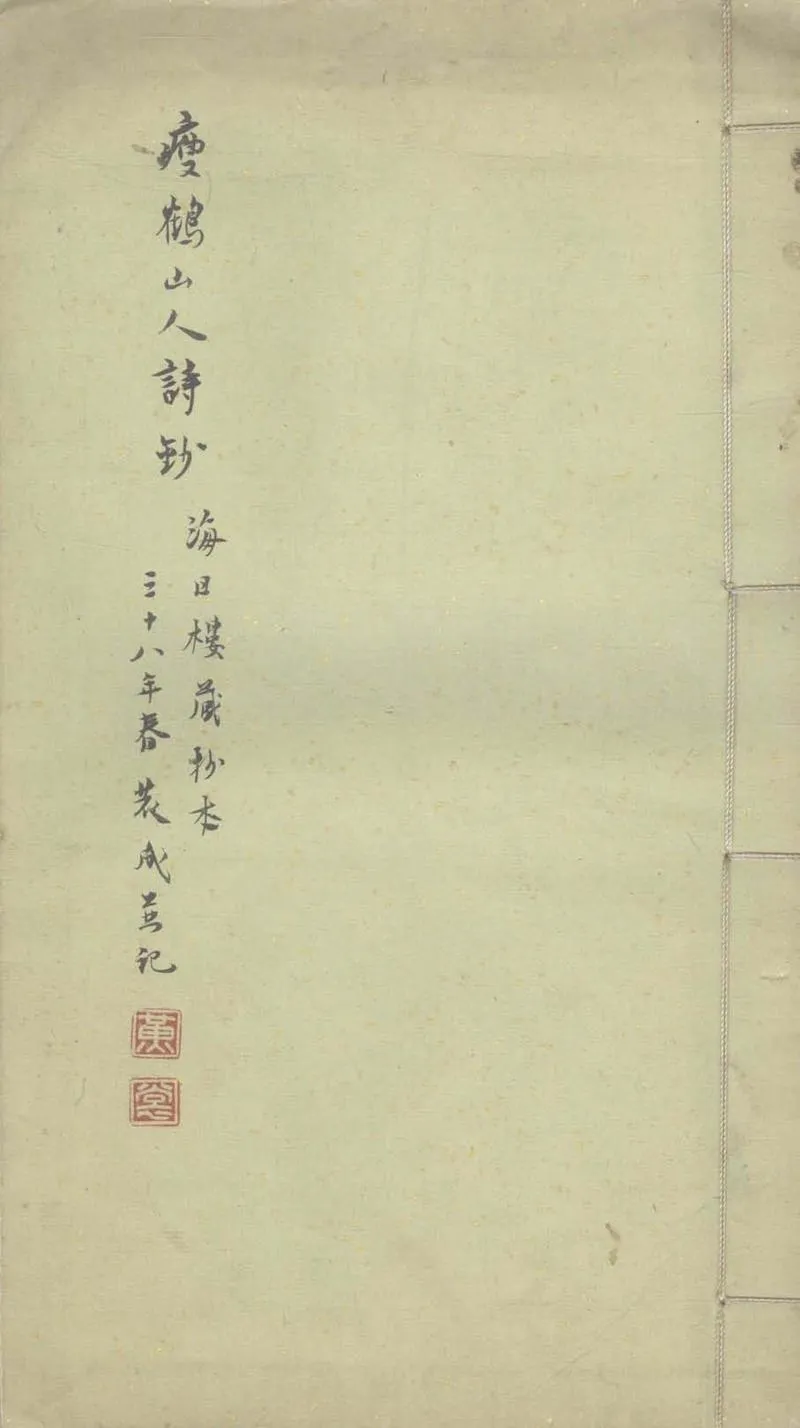 瘦鶴山人詩鈔
海日樓藏抄本
三十八年春裝成並記
黃
裳